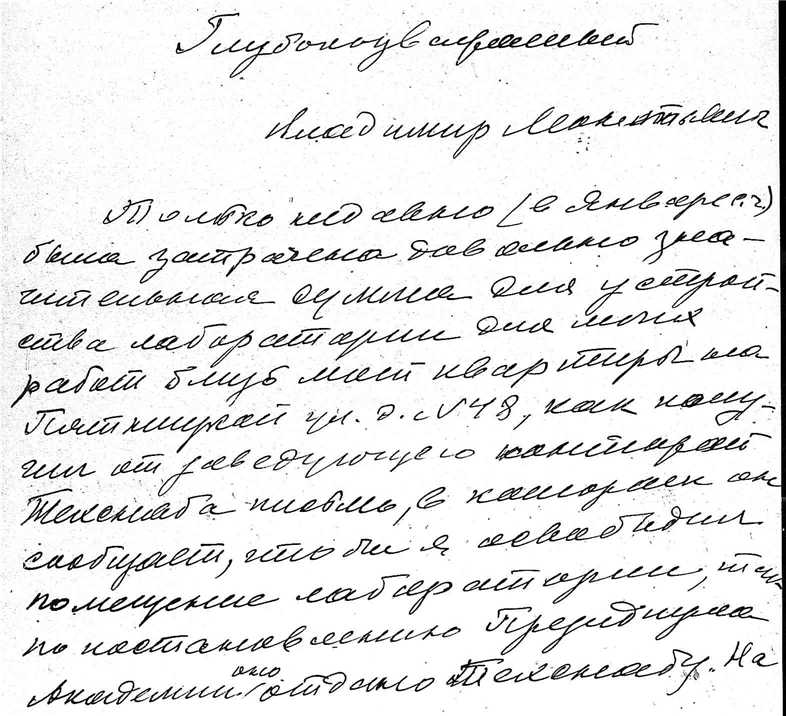 Глубокоуважаемый
Владимир Леонтьевич
Только недавно (в январе с.г.)
была затрачена довольно зна-
чительная сумма для устрой-
ства лаборатории для моих
работ близ моей квартиры на
Пятницкой ул. д. № 48, как полу-
чил от заведующего конторой
Техснаба письмо, в котором он
сообщает, что бы я освободил
помещение лаборатории, так
по постановлению Президиума
Академии оно отдано Техснабу. На